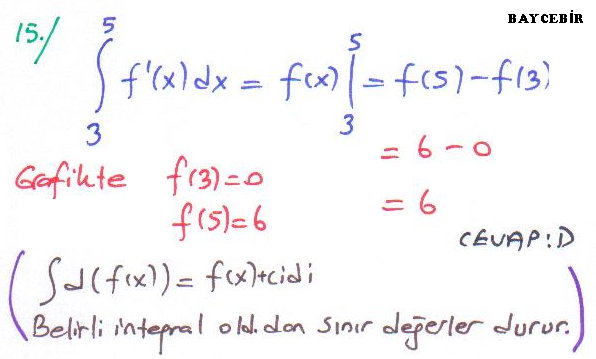 BAYCEBİR
15./ ∫₃⁵ f'(x)dx = f(x)|₃⁵ = f(5)-f(3)
= 6-0
Grafikte f(3)=0
= 6
f(5)=6
CEVAP:D
(∫d(f(x)) = f(x)+cidi
Belirli integral old.dan sınır değerler durur.)